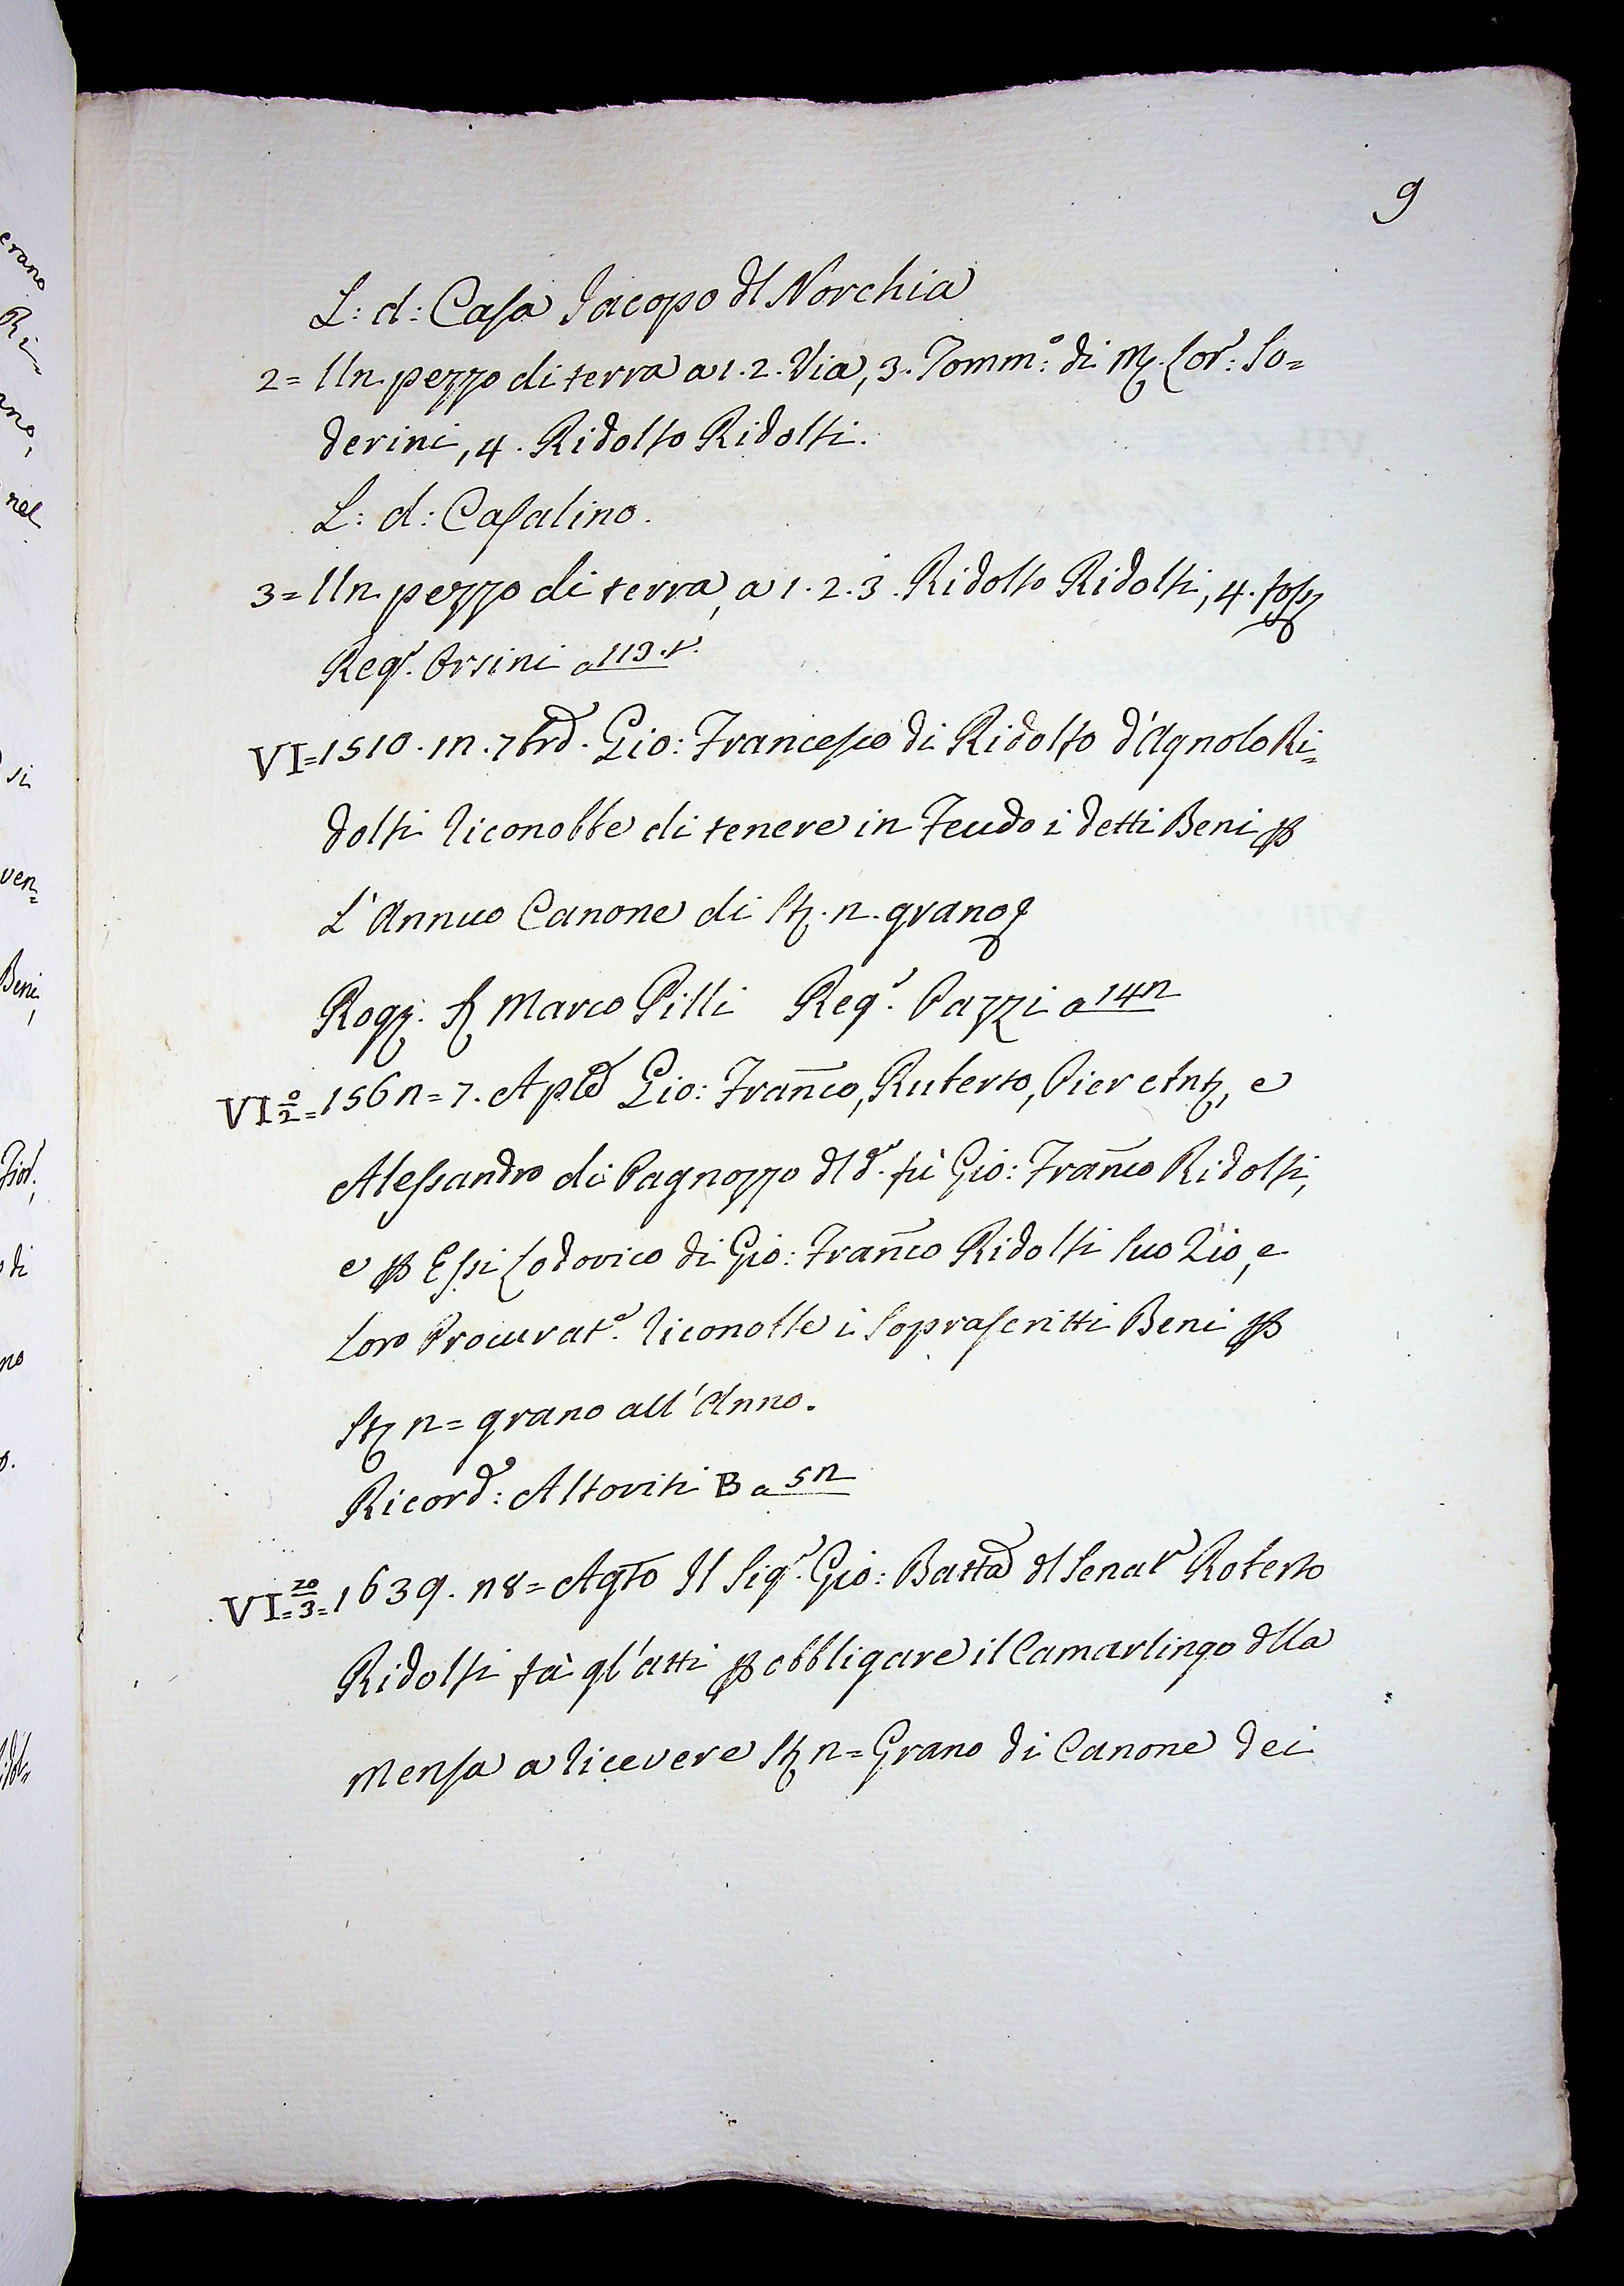 9
L: d: Casa Jacopo dl Norchia
2= Un pezzo di terra a 1. 2. Via, 3. Tomm:º di M. Lor: So=
derini, 4. Ridolfo Ridolfi.
L: d: Casalino.
3= Un pezzo di terra, a 1. 2. 3. Ridolfo Ridolfi, 4.
Regº. Orsini a 113.t.
VI= 1510. 12. 7bre. Gio: Francesco di Ridolfo d'Agnolo Ri=
dolfi riconobbe di tenere in Feudo i detti Beni p
L'Annuo Canone di St. 12. grano
Rog. S Marco Pilli Regº. Pazzi a 142
VI º/2= 1562= 7. Aple Gio: Franco, Ruberto, Pier Antº, e
Alessandro di Pagnozzo dl dº. fù Gio: Franco Ridolfi,
e p Essi Lodovico di Gio: Franco Ridolfi suo Zio, e
Loro Procuratº. riconobbe i soprascritti Beni p
St 12= grano all'Anno.
Ricord: Altoviti B a 52
VI= zo/3= 1639. 28= Agto Il Sigº. Gio: Batta dl Senatº Roberto
Ridolfi fà gl'atti p obbligare il Camarlingo dlla
Mensa a ricevere St 12= Grano di Canone dei
erano
Ri=
nel
si
ven=
Beni,
di
no